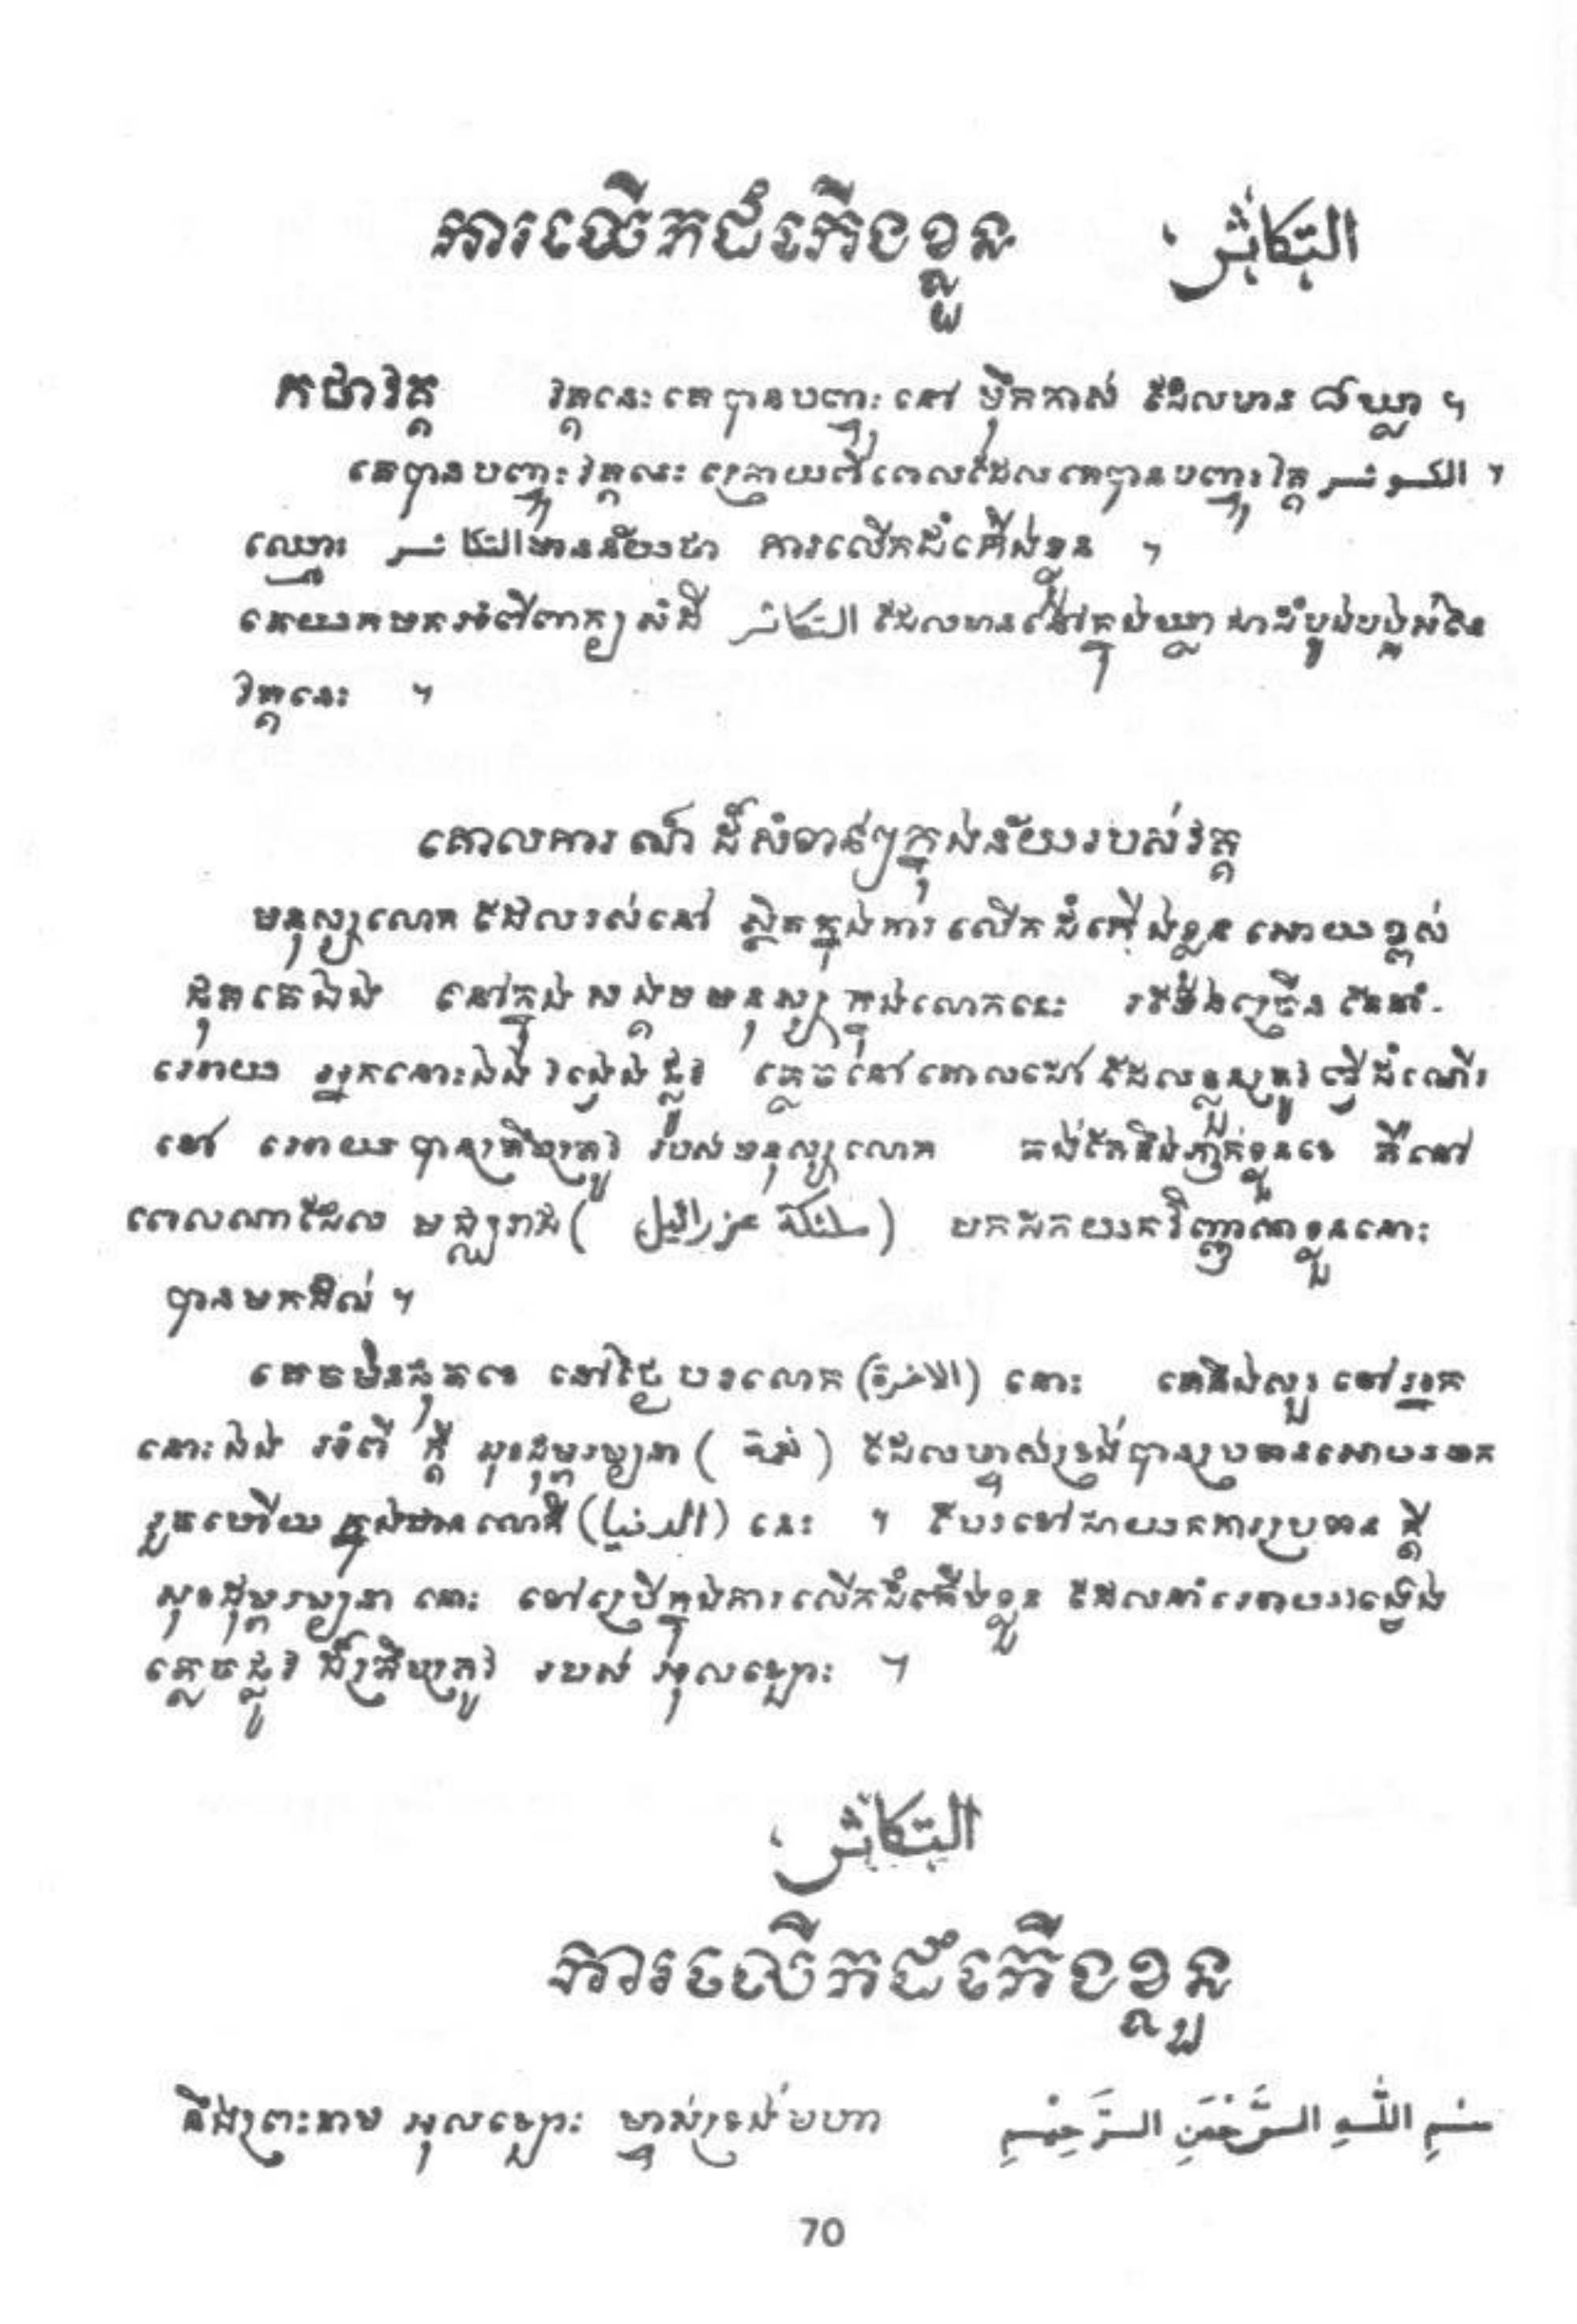 ការលើកជំកើងខ្លួន التكاثر
កថាវគ្គ វគ្គនេះ គេបានបញ្ចុះ នៅ ម៉ឹកកាស់ ដែលមាន ៨ឃ្លា ។
គេបានបញ្ចុះ វគ្គនេះ ក្រោយពីពេលដែលគេបានបញ្ចុះវគ្គ الكوثر ។
ឈ្មោះ التكاثر មានន័យថា ការលើកជំកើងខ្លួន ។
គេយកមកអំពីពាក្យសំដី التكاثر ដែលមាននៅក្នុងឃ្លា ជាដំបូងបង្អស់នៃ
វគ្គនេះ ។
គោលការណ៍ ដ៏សំខាន់ៗក្នុងន័យរបស់វគ្គ
មនុស្សលោក ដែលរស់នៅ ស្ថិតក្នុងការ លើកជំកើងខ្លួន អោយខ្ពស់
ជុតគេឯង នៅក្នុង សង្គមមនុស្ស ក្នុងលោកនេះ រទឹងច្រើន តែនាំ
អោយ អ្នកនោះឯង វង្វេងផ្លូវ ភ្លេចនៅ គោលដៅ ដែលខ្លួនត្រូវ ធ្វើដំណើរ
ទៅ អោយបានត្រឹមត្រូវ របស់មនុស្សលោក គង់តែនឹងភ្ញាក់ខ្លួនទេ គឺនៅ
ពេលណាដែល មច្ចុរាជ (ملئكة عزرائيل) មកដកយកវិញ្ញាណខ្លួននោះ
បានមកដល់ ។
គេចមិនផុតទេ នៅថ្ងៃ បរលោក (الاخرة) នោះ គេនឹងសួរ ទៅអ្នក
នោះឯង អំពី ក្តី សុខដុម្ភរម្យនា ( نعمة ) ដែលម្ចាស់ទ្រង់បានប្រទានអោយមក
រួចហើយ ក្នុងឋានលោកិ (الدنيا) នេះ ។ បែរទៅជាយកការប្រទាន ក្តី
សុខដុម្ភរម្យនា នោះ ទៅប្រើក្នុងការលើកជំកើងខ្លួន ដែលនាំអោយវង្វេង
ភ្លេចផ្លូវ ដ៏ត្រឹមត្រូវ របស់ អុលឡោះ ។
التكاثر
ការលើកជំកើងខ្លួន
នឹងព្រះនាម អុលឡោះ ម្ចាស់ទ្រង់មហា بسم اللَّهِ الرَّحْمَنِ الرَّحِيمِ
70